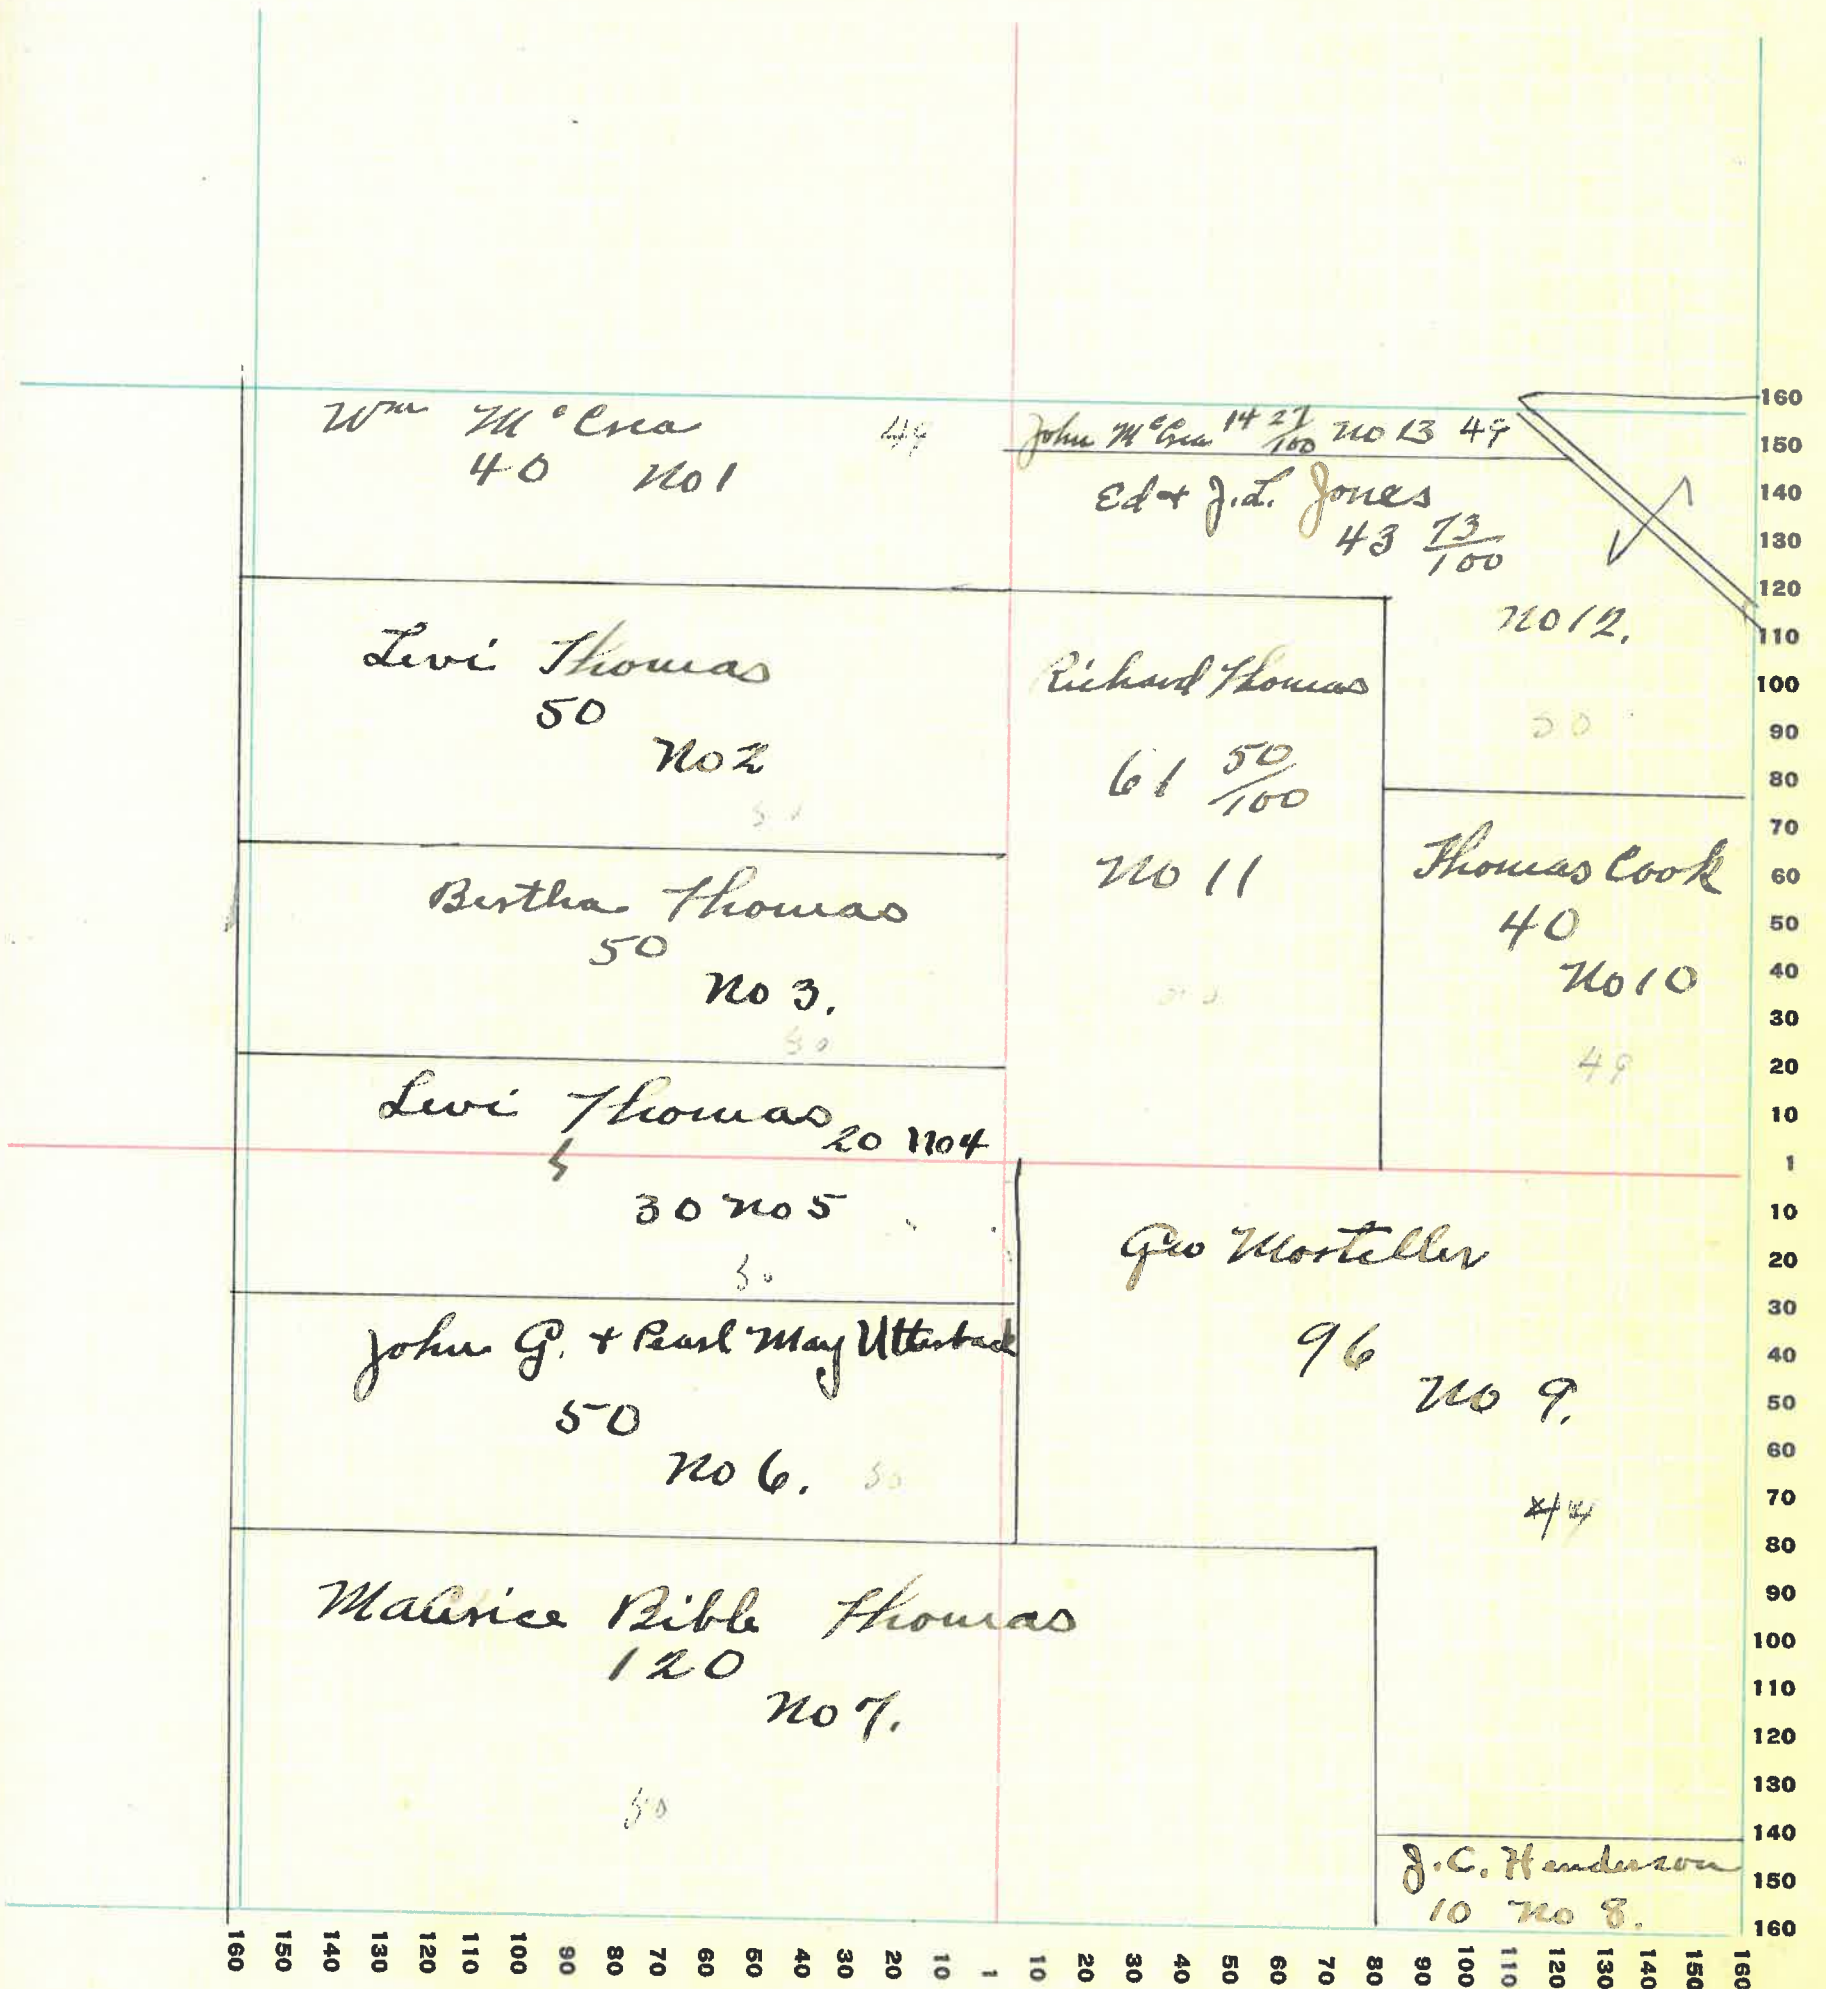 Wm McCrea 49
40 No 1
John McCrea 14 27/100 No 13 49
Ed + J.L. Jones
43 73/100
No 12.
50
Levi Thomas
50
No 2
50
Richard Thomas
61 50/100
No 11
50
Thomas Cook
40
No 10
49
Bertha Thomas
50
No 3.
50
Levi Thomas
20 No 4
30 No 5
50
Geo Mosteller
96
No 9.
44
John G. + Pearl May Utterback
50
No 6. 50
Maurice Bible Thomas
120
No 7.
50
J.C. Henderson
10 No 8.
160
150
140
130
120
110
100
90
80
70
60
50
40
30
20
10
1
10
20
30
40
50
60
70
80
90
100
110
120
130
140
150
160
160 150 140 130 120 110 100 90 80 70 60 50 40 30 20 10 1 10 20 30 40 50 60 70 80 90 100 110 120 130 140 150 160